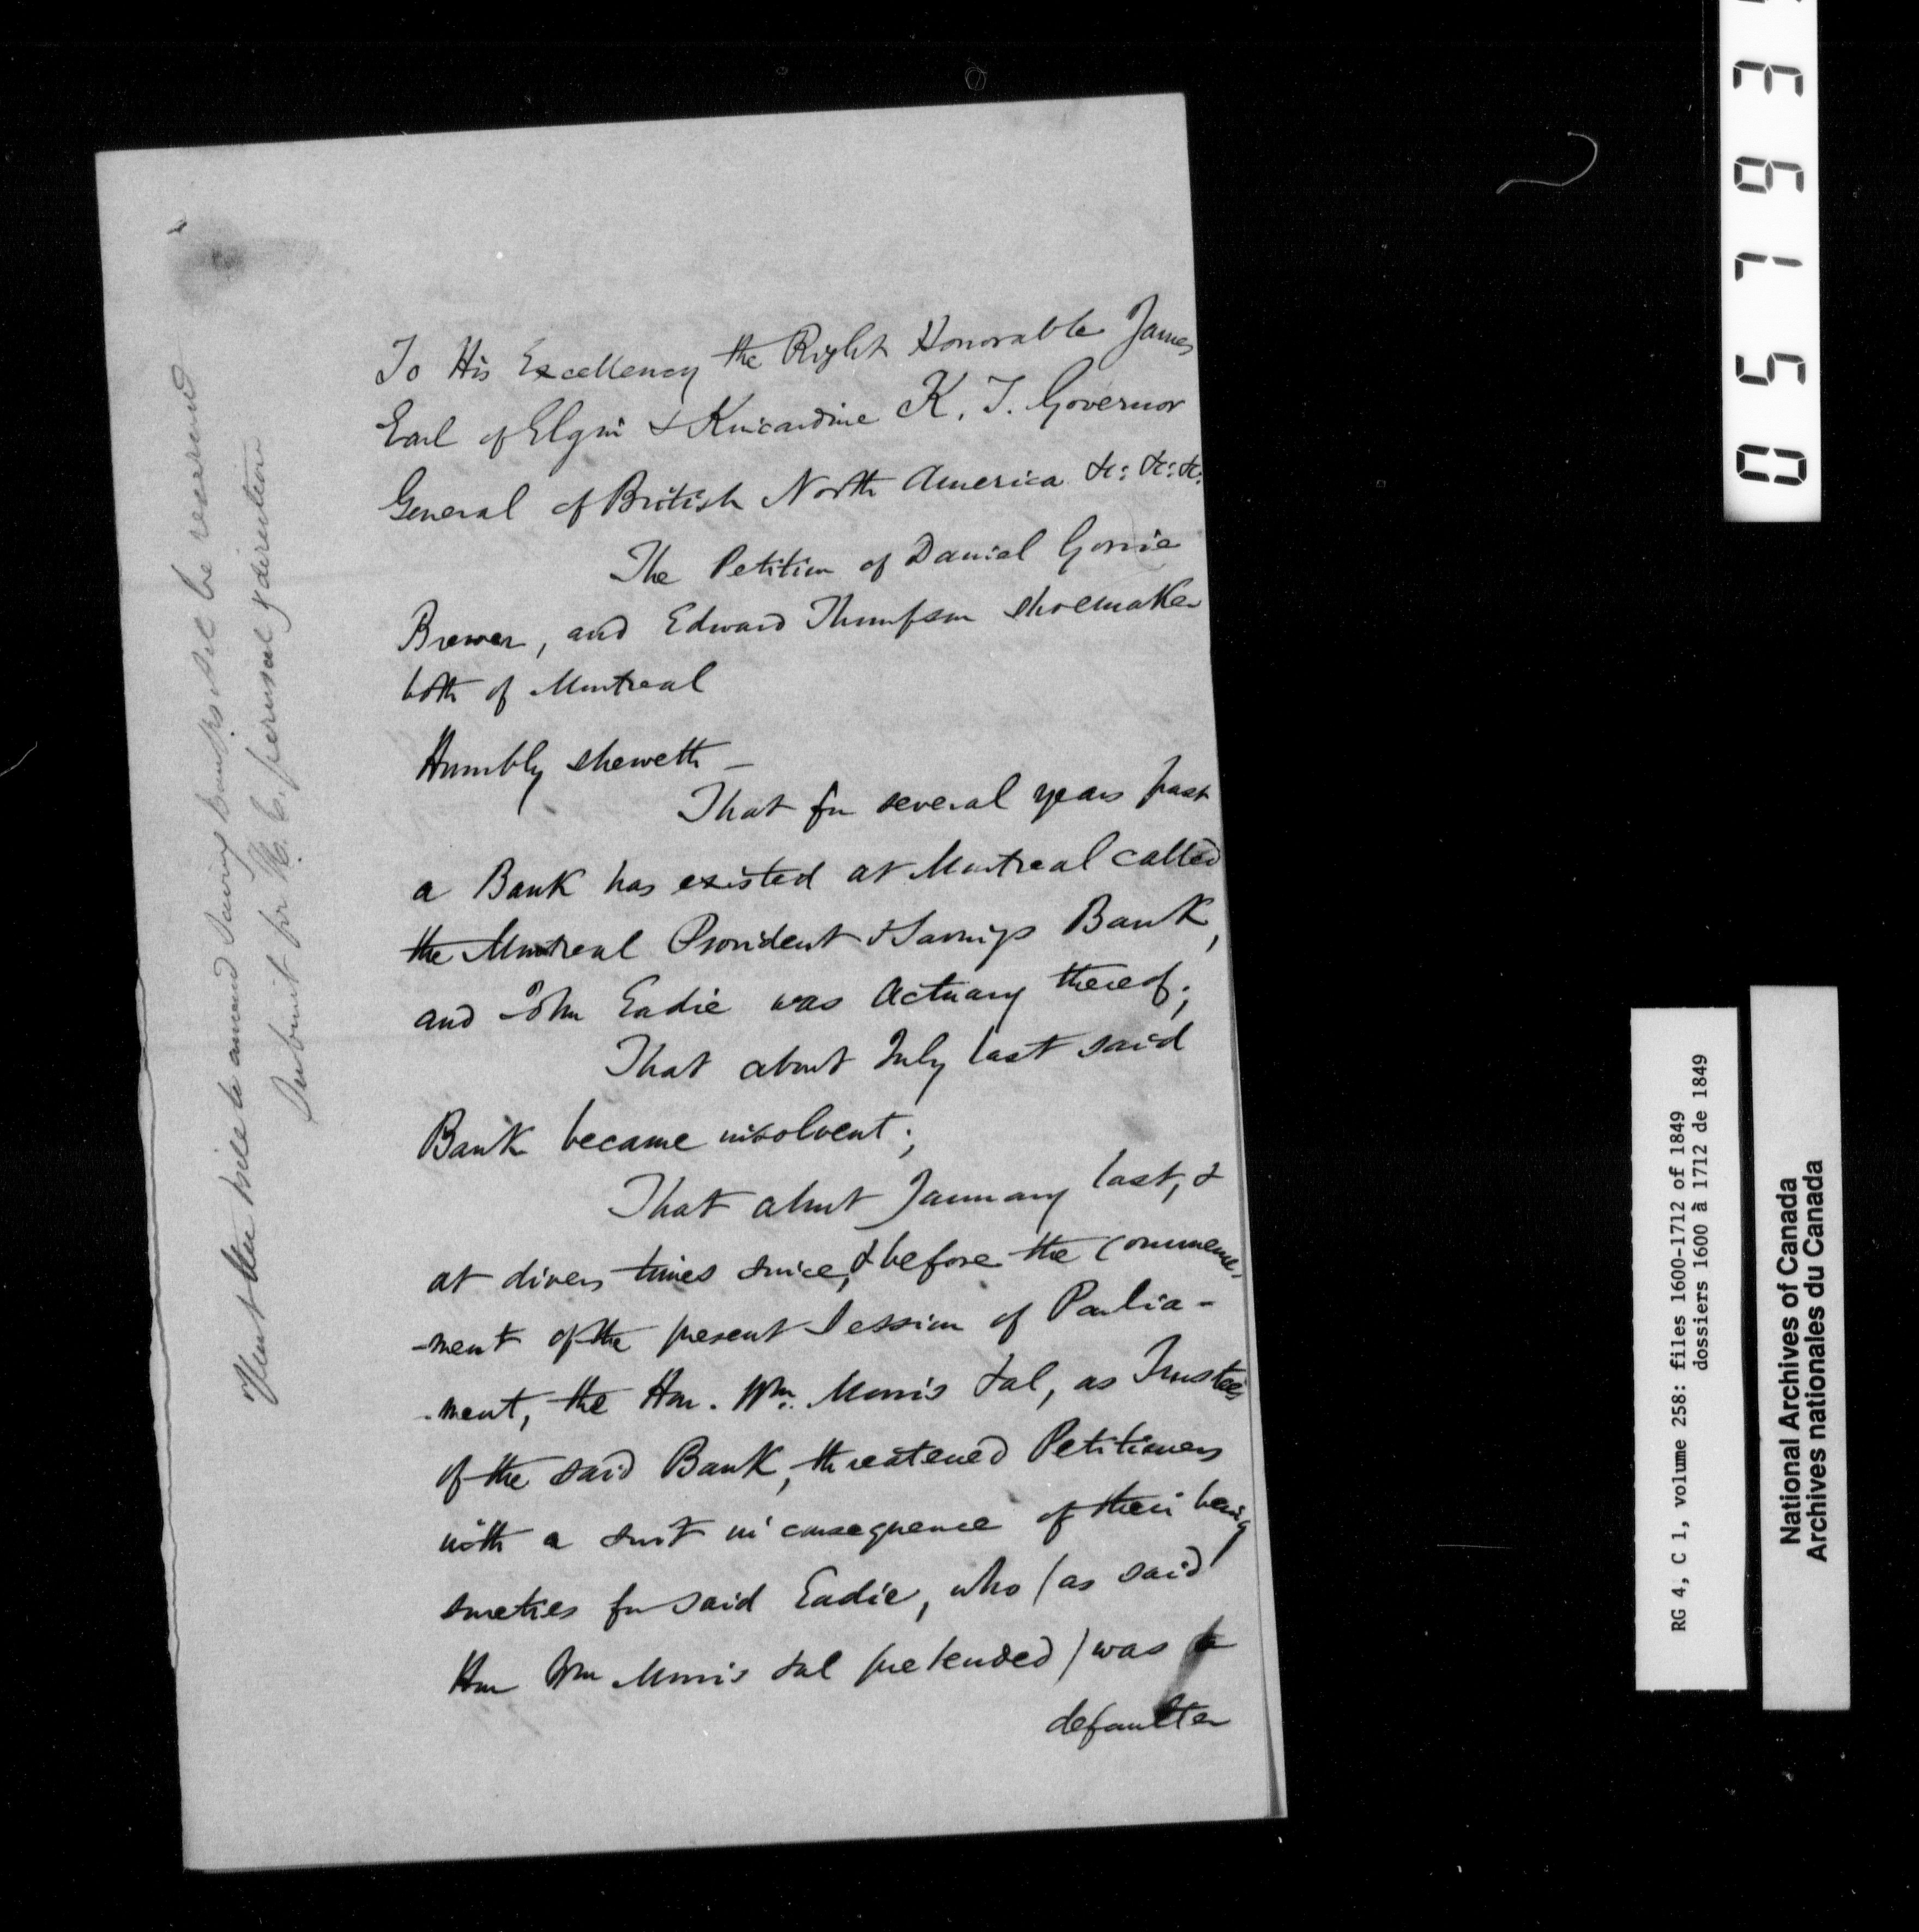 To His Excellency the Right Honorable James
Earl of Elgin & Kincardine K. T. Governor
General of British North America &c: &c: &c:
The Petition of Daniel Gorrie
Brewer, and Edward Thompson shoemaker
both of Montreal
Humbly sheweth —
That for several years past
a Bank has existed at Montreal called
the Montreal Provident & Savings Bank,
and John Eadie was Actuary thereof;
That about July last said
Bank became insolvent;
That about January last, &
at divers times since, & before the commence,
-ment of the present Session of Parlia-
-ment, the Hon. Wm. Morris & al, as Trustees
of the said Bank, threatened Petitioners
with a suit in consequence of their being
sureties for said Eadie, who (as said
Hon Wm Morris & al pretended) was a
defaulter
bill to amend Saving banks will be reserved
Submit for H. E. perusal & direction
057963
RG 4, C 1, volume 258: files 1600-1712 of 1849
dossiers 1600 à 1712 de 1849
National Archives of Canada
Archives nationales du Canada